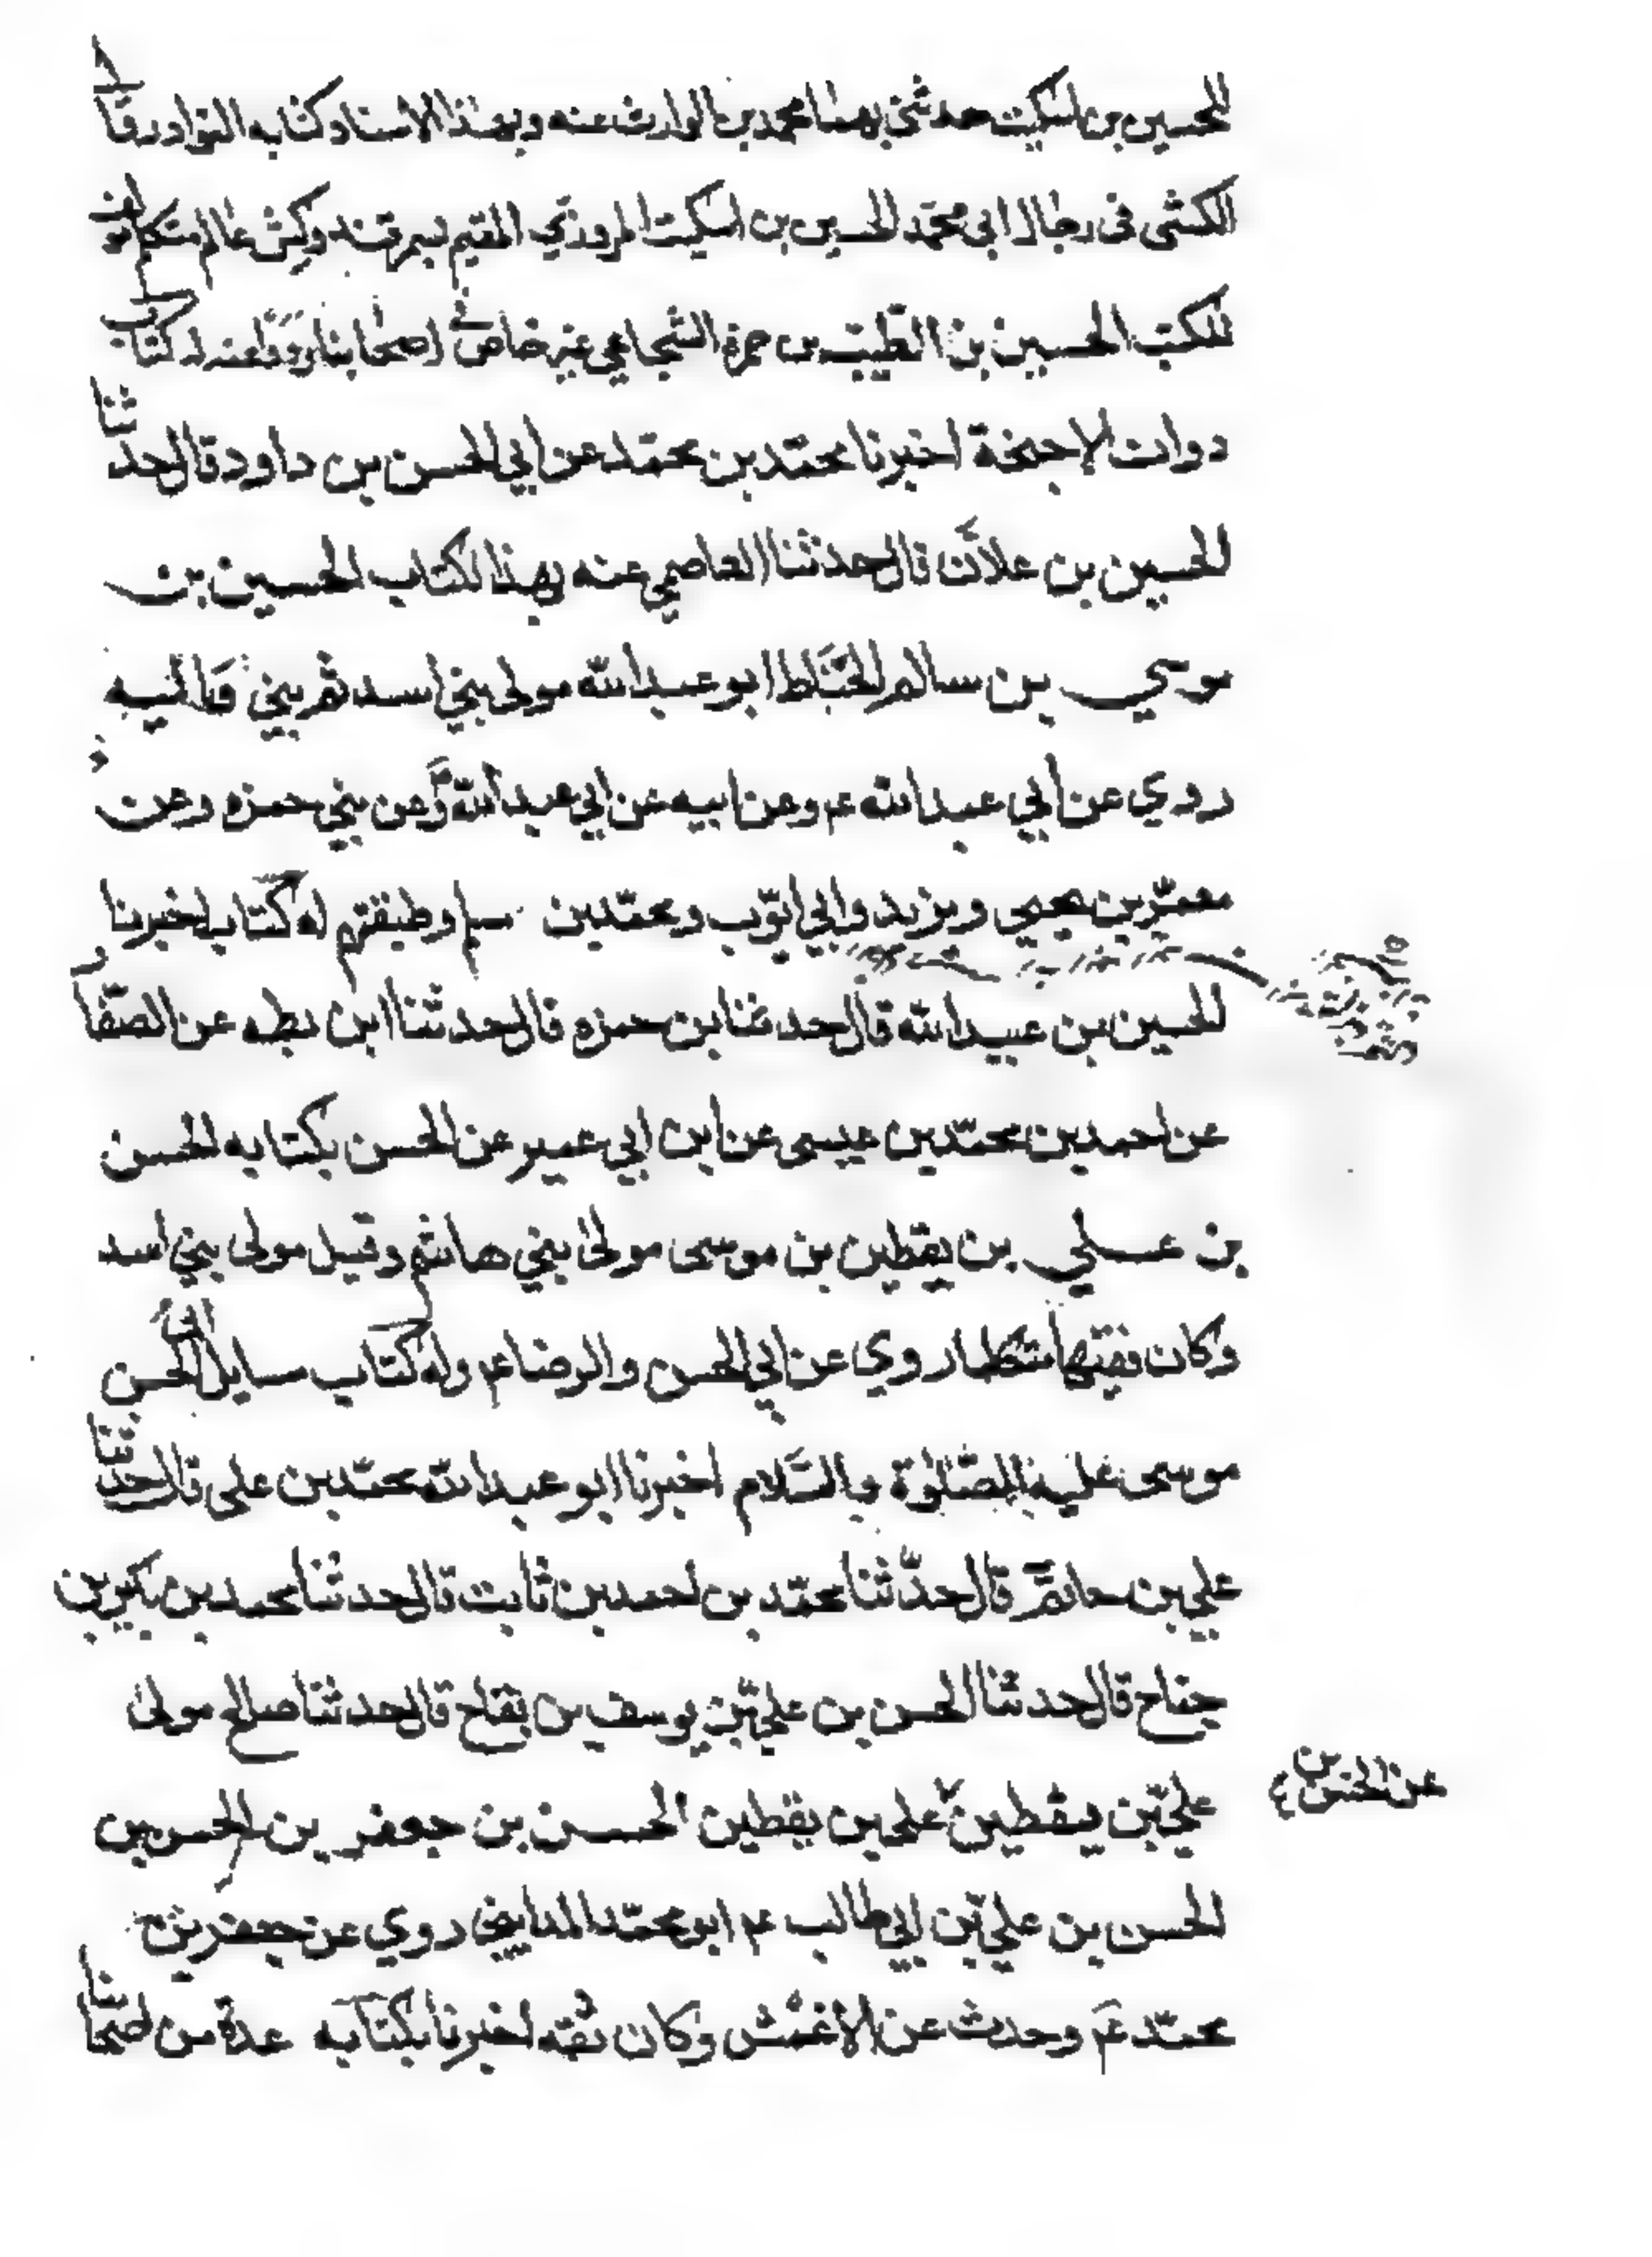 الحسين بن اسكيت حدثني بهما محمد بن الوارث عنه وبهذا الاسناد كتابه النوادر قال
الكشى فى رجال ابى محمد الحسين بن اسكيت المروزي المقيم بسمرقند وكش عالم متكلم
للكتب الحسين بن الطيب بن حمزة الشجاعي غير خاص في اصحابنا روينا عنه له كتاب
دوات الاجنحة اخبرنا محمد بن محمد عن ابي الحسن بن داود قال حدثنا
الحسين بن علان قال حدثنا العاصمي عنه بهذا الكتاب الحسين بن
موسي بن سالم الحناط ابو عبد الله مولى بني اسد ثم بني والبه
روي عن ابي عبد الله عم وعن ابيه عن ابي عبد الله وعن بني حمزه وعن
معمر بن يحيى وبزيد وابي ايوب ومحمد بن سلم وطبقتهم له كتاب اخبرنا
الحسين بن عبيد الله قال حدثنا بن حمزه قال حدثنا ابن بطه عن الصفار
عن احمد بن محمد بن عيسى عن ابن ابي عمير عن الحسن بكتابه الحسن
بن عــلي بن يقطين بن موسى مولى بني هاشم وقيل مولى بني اسد
وكان فقيها متكلما روي عن ابي الحسن والرضا عم وله كتاب مسايل ابى الحسن
موسى عليه الصلوة والسلام اخبرنا ابو عبد الله محمد بن على قال حدثنا
علي بن حاتم قال حدّثنا محمّد بن احمد بن ثابت قال حدثنا محمد بن بكير بن
جناح قال حدثنا الحسن بن عليّ بن يوسف بن بقاح قال حدثنا صالح مولى
عليّ بن يقطين على بن يقطين الحســن بن جعفر بن الحسن بن
عن الحسن بن
الحسن بن عليّ بن ابي طالب عم ابو محمّد المدايني روي عن جعفر بن
محمّد عم وحدث عن الاعمش وكان ثقه اخبرنا بكتابه عدة من اصحابنا